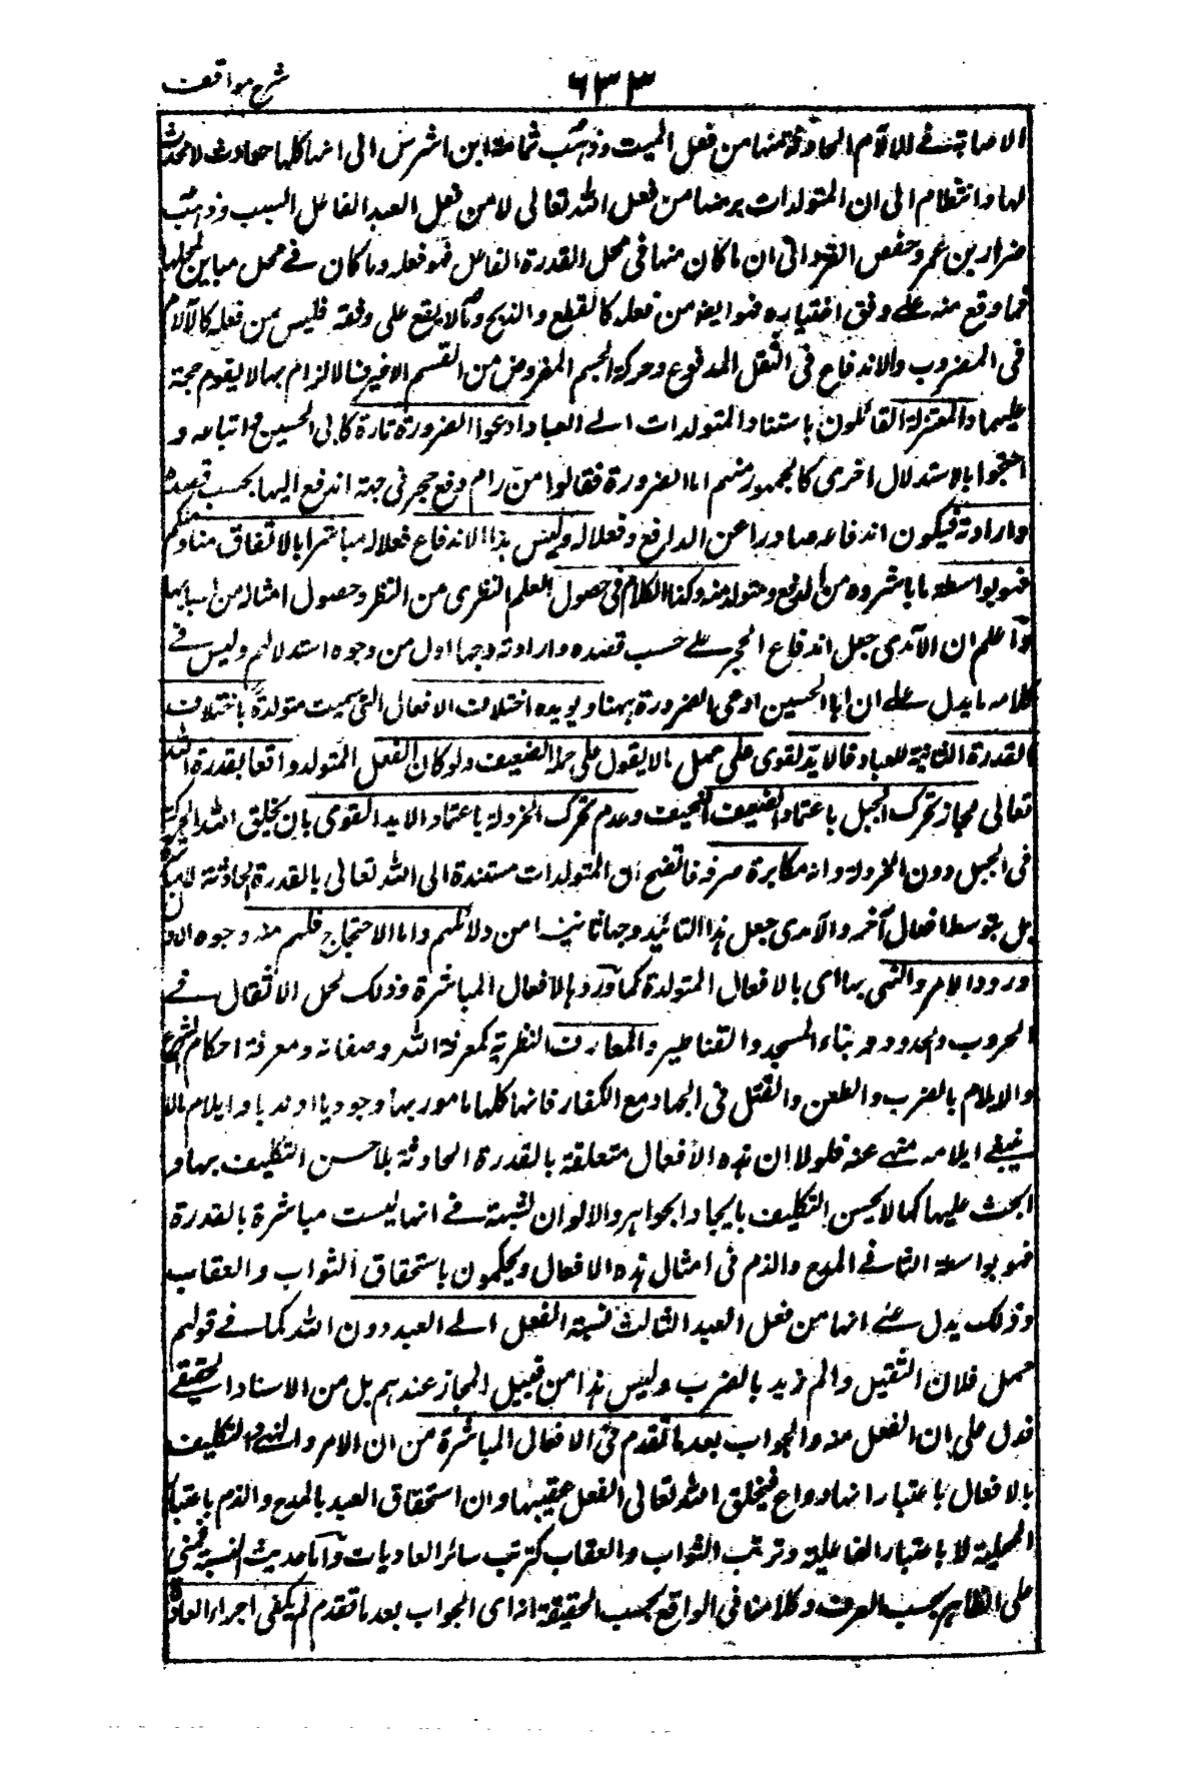 شرح مواقف
٦٣٣
الاصابة في الالام الحادثة منها من فعل الميت وذهب ثمامة ابن اشرس الى انها كلها حوادث لا محدث
لها والنظام الى ان المتولدات برمتها من فعل الله تعالى لا من فعل العبد الفاعل السبب وذهب
ضرار بن عمرو حفص الفرد الى ان ما كان منها في محل القدرة الفاعل فهو فعله وما كان في محل مباين لمحلها
فما وقع منه على وفق اختياره فهو ايضا من فعله كالقطع والذبح وما لا يقع على وفقه فليس من فعله كالآلام
في المضروب والاندفاع في الثقل المدفوع وحركة الجسم المفروض من القسم الاخير فالالزام بها لا يقوم حجة
عليهما والمعتزلة القائلون باستناد المتولدات الى العباد ادعوا الضرورة تارة كابي الحسين مع اتباعه و
احتجوا بالاستدلال اخرى كالجمهور منهم اما الضرورة فقالوا من رام دفع حجر في جهة اندفع اليها بحسب قصده
وارادته فيكون اندفاعه صادرا عن الدافع وفعلا له وليس هذا الاندفاع فعلا له مباشرا بالاتفاق منا ومنكم
فهو بواسطة ما باشره من الدفع ومتولد منه وكذا الكلام في حصول العلم النظري من النظر وحصول امثاله من اسبابها
وآعلم ان الآمدي جعل اندفاع الحجر على حسب قصده وارادته وجها اول من وجوه استدلالهم وليس في
كلامه ما يدل على ان ابا الحسين ادعى الضرورة ههنا ويؤيده اختلاف الافعال التي سميت متولدة باختلاف
القدرة الثابتة للعباد فالايد لقوى على حمل ما لا يقوى على حمله الضعيف ولو كان الفعل المتولد واقعا بقدرة الله
تعالى لجاز تحرك الجبل باعتماد الضعيف النحيف وعدم تحرك الخردلة باعتماد الايد القوى بان يخلق الله الحركة
في الجبل دون الخردلة وانه مكابرة صرفة فاتضح ان المتولدات مستندة الى الله تعالى بالقدرة الحادثة لا مباشرة
بل بتوسط افعال آخر والآمدي جعل هذا التائيد وجها ثانيا من دلائلهم واما الاحتجاج فلهم فيه وجوه الاول
ورود الامر والنهي بها اى بالافعال المتولدة كما ورد بالافعال المباشرة وذلك كحمل الاثقال في
الحروب والحدود وبناء المسجد والقناطير والمعارف النظرية كمعرفة الله وصفاته ومعرفة احكام الشرع
والايلام بالضرب والطعن والقتل في الجهاد مع الكفار فانها كلها مامور بها وجوبا او ندبا وايلام مالا
ينبغي ايلامه منهى عنه فلولا ان هذه الافعال متعلقة بالقدرة الحادثة لما حسن التكليف بها و
الحث عليها كما لا يحسن التكليف بايجاد الجواهر والالوان لا شبهة في انها ليست مباشرة بالقدرة
فهو بواسطة الثاني المدح والذم في امثال هذه الافعال ويحكمون باستحقاق الثواب والعقاب
وذلك يدل على انها من فعل العبد الثالث نسبة الفعل الى العبد دون الله كما في قولهم
حمل فلان الثقيل والم زيد بالضرب وليس هذا من قبيل المجاز عندهم بل من الاسناد الحقيقي
فدل على ان الفعل منه والجواب بعد ما تقدم في الافعال المباشرة من ان الامر والنهي والتكليف
بالافعال باعتبار انها دواع فيخلق الله تعالى الفعل عقيبها وان استحقاق العبد بالمدح والذم باعتبار
المحلية لا باعتبار الفاعلية وترتب الثواب والعقاب كترتب سائر العاديات وآما حديث النسبة فمبنى
على الظاهر بحسب العرف وكلامنا في الواقع بحسب الحقيقة انه اى الجواب بعد ما تقدم لم يكفى اجراء العادة